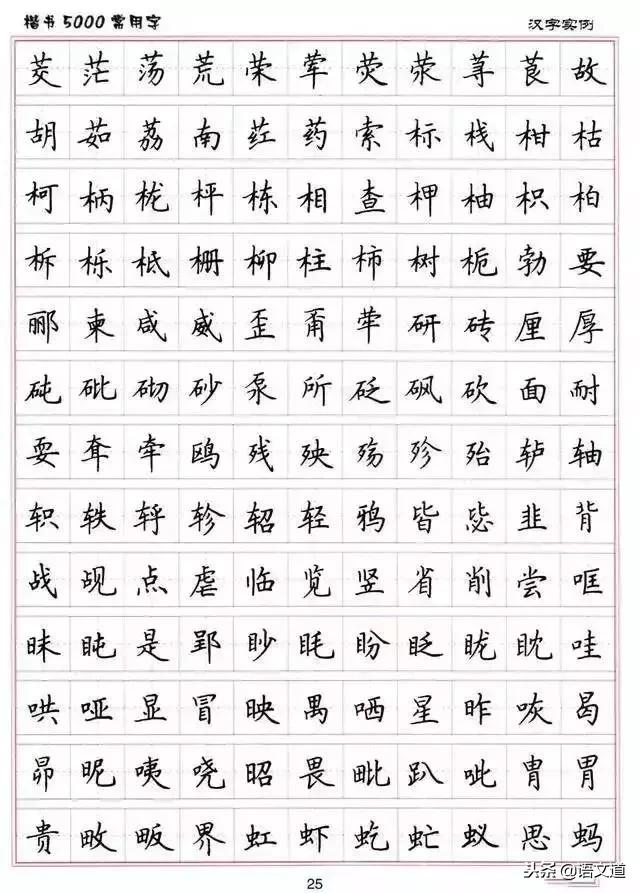 楷书5000常用字 汉字实例
茭茫荡荒荣荤荧荥荨茛故
胡茹荔南荭药索标栈柑枯
柯柄栊枰栋相查柙柚枳柏
柝栎柢栅柳柱柿树栀勃要
郦柬咸威歪甭荦研砖厘厚
砘砒砌砂泵所砭砜砍面耐
耍耷牵鸥残殃殇殄殆轳轴
轵轶轷轸轺轻鸦皆毖韭背
战觇点虐临览竖省削尝哐
昧盹是郢眇眊盼眨眬眈哇
哄哑显冒映禺哂星昨咴曷
昴昵咦哓昭畏毗趴呲胄胃
贵畋畈界虹虾虼虻蚁思蚂
25
头条@语文道